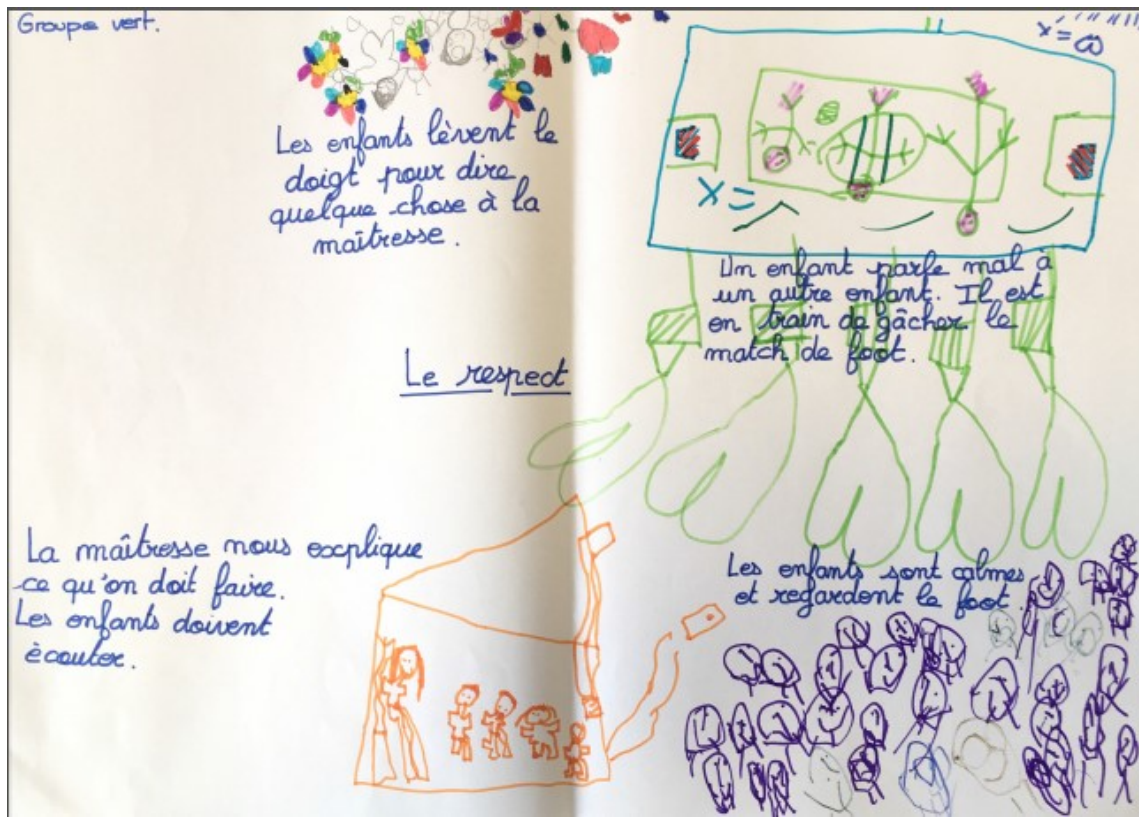 Groupe vert.
x =
Les enfants lèvent le
doigt pour dire
quelque chose à la
maîtresse.
x =
Un enfant parle mal à
un autre enfant. Il est
en train de gâcher le
match de foot.
Le respect
La maîtresse nous explique
ce qu'on doit faire.
Les enfants doivent
écouter.
Les enfants sont calmes
et regardent le foot.